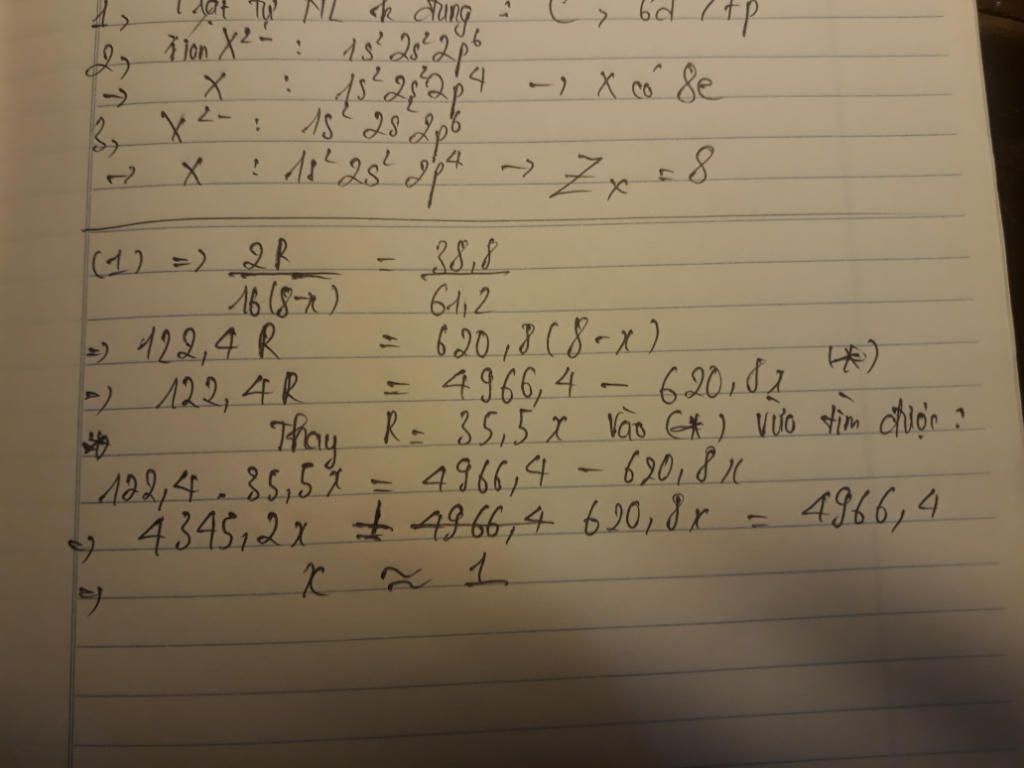 1, Trật tự NL k đúng : C, 6d / 7p
2, ion X²⁻ : 1s² 2s² 2p⁶
→ X : 1s² 2s² 2p⁴ → X có 8e
3, X²⁻ : 1s² 2s² 2p⁶
→ X : 1s² 2s² 2p⁴ → Zₓ = 8
(1) => 2R / 16(8-x) = 38,8 / 61,2
=> 122,4 R = 620,8(8-x)
=> 122,4R = 4966,4 - 620,8x (*)
Thay R = 35,5x vào (*) vừa tìm được :
122,4 . 35,5x = 4966,4 - 620,8x
=> 4345,2x + 620,8x = 4966,4
=> x ≈ 1